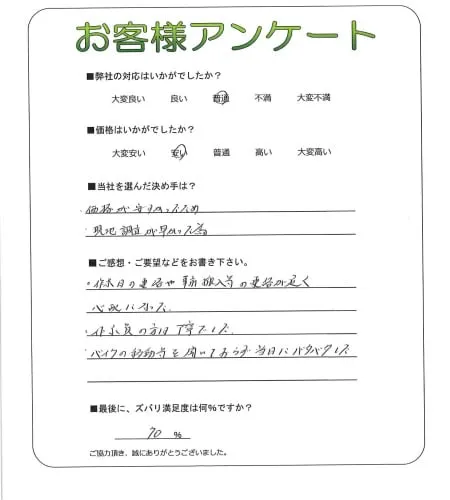 お客様アンケート
■弊社の対応はいかがでしたか？
大変良い 良い 普通 不満 大変不満
■価格はいかがでしたか？
大変安い 安い 普通 高い 大変高い
■当社を選んだ決め手は？
・価格が安かったため
・現地調査が早かった為
■ご感想・ご要望などをお書き下さい。
・作業日の連絡や事前搬入等の連絡が遅く
心配になった。
・作業員の方は丁寧でした。
・バイクの移動等を聞いておらず当日にバタバタした
■最後に、ズバリ満足度は何%ですか？
70 %
ご協力頂き、誠にありがとうございました。